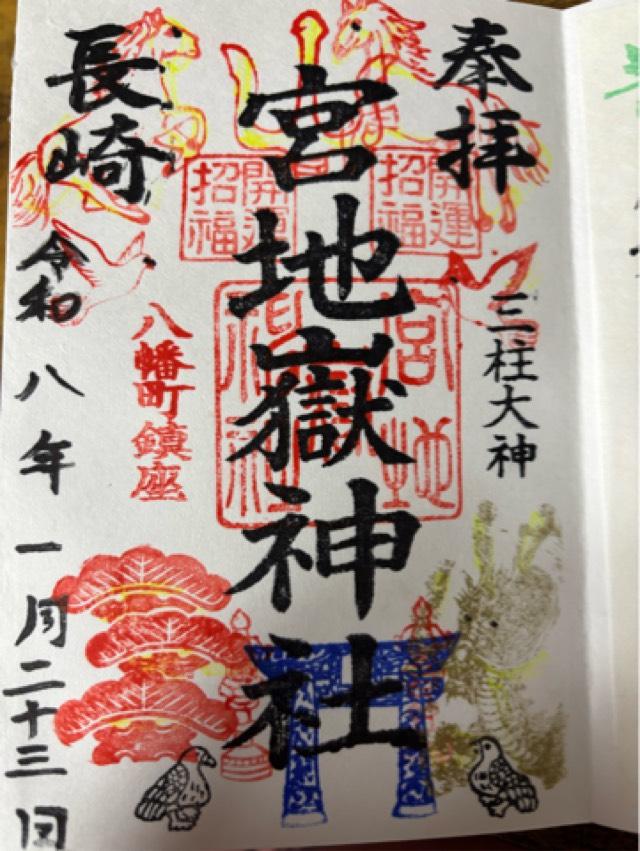 奉拝
三柱大神
開運
招福
宮地嶽神社
開運
招福
八幡町鎮座
長崎
令和八年一月二十三日